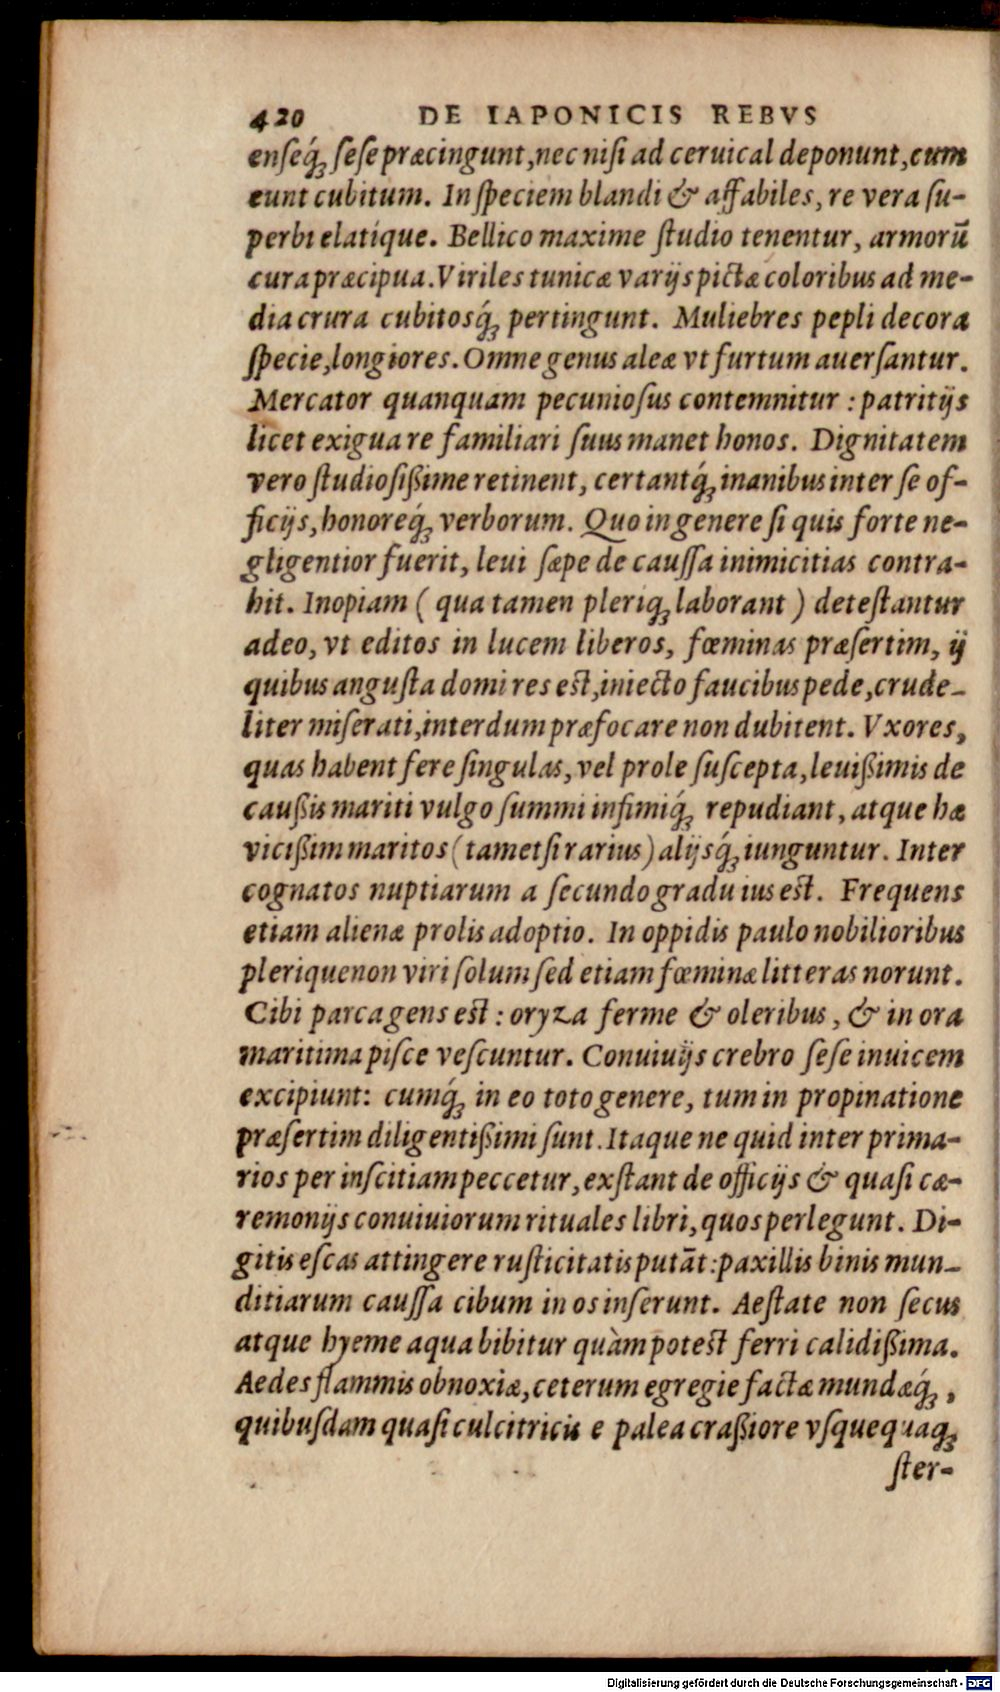 420 DE IAPONICIS REBVS
enseq́ꝫ sese præcingunt, nec nisi ad ceruical deponunt, cum
eunt cubitum. In speciem blandi & affabiles, re vera su-
perbi elatique. Bellico maxime studio tenentur, armorū
cura præcipua. Viriles tunicæ varijs pictæ coloribus ad me-
dia crura cubitosq́ꝫ pertingunt. Muliebres pepli decora
specie, longiores. Omne genus aleæ vt furtum auersantur.
Mercator quanquam pecuniosus contemnitur : patritijs
licet exigua re familiari suus manet honos. Dignitatem
vero studiosißime retinent, certantq́ꝫ inanibus inter se of-
ficijs, honoreq́ꝫ verborum. Quo in genere si quis forte ne-
gligentior fuerit, leui sæpe de caussa inimicitias contra-
hit. Inopiam ( qua tamen pleriqꝫ laborant ) detestantur
adeo, vt editos in lucem liberos, fœminas præsertim, ij
quibus angusta domi res est, iniecto faucibus pede, crude-
liter miserati, interdum præfocare non dubitent. Vxores,
quas habent fere singulas, vel prole suscepta, leuißimis de
caußis mariti vulgo summi infimiq́ꝫ repudiant, atque hæ
vicißim maritos (tametsi rarius) alijsq́ꝫ iunguntur. Inter
cognatos nuptiarum a secundo gradu ius est. Frequens
etiam alienæ prolis adoptio. In oppidis paulo nobilioribus
plerique non viri solum sed etiam fœminæ litteras norunt.
Cibi parca gens est : oryza ferme & oleribus, & in ora
maritima pisce vescuntur. Conuiuijs crebro sese inuicem
excipiunt: cumq́ꝫ in eo toto genere, tum in propinatione
præsertim diligentißimi sunt. Itaque ne quid inter prima-
rios per inscitiam peccetur, exstant de officijs & quasi cæ-
remonijs conuiuiorum rituales libri, quos perlegunt. Di-
gitis escas attingere rusticitatis putāt : paxillis binis mun-
ditiarum caussa cibum in os inserunt. Aestate non secus
atque hyeme aqua bibitur quàm potest ferri calidißima.
Aedes flammis obnoxiæ, ceterum egregie factæ mundæq́ꝫ,
quibusdam quasi culcitricis e palea craßiore vsquequaqꝫ
ster-
Digitalisierung gefördert durch die Deutsche Forschungsgemeinschaft - DFG